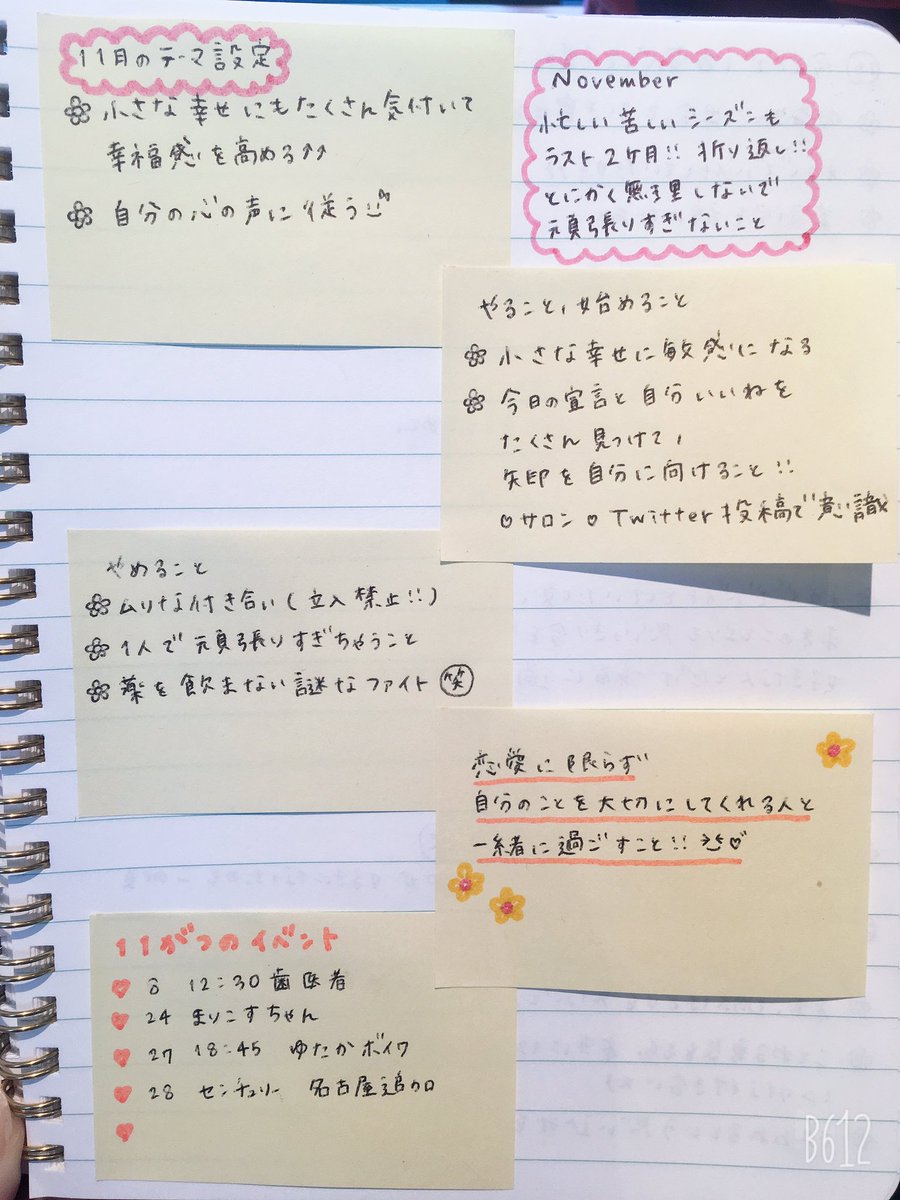 11月のテーマ設定
小さな幸せにもたくさん気付いて
幸福感を高める↑↑
自分の心の声に従う
November
忙しい苦しいシーズンも
ラスト2ケ月!! 折り返し!!
とにかく無理しないで
頑張りすぎないこと
やること、始めること
小さな幸せに敏感になる
今日の宣言と自分いいねを
たくさん見つけて、
矢印を自分に向けること!!
♡サロン♡Twitter投稿で意識
やめること
ムリな付き合い(立入禁止!!)
1人で頑張りすぎちゃうこと
薬を飲まない謎なファイト 笑
恋愛に限らず
自分のことを大切にしてくれる人と
一緒に過ごすこと!!
11がつのイベント
♥ 8 12:30 歯医者
♥ 24 まりこすちゃん
♥ 27 18:45 ゆたかボイワ
♥ 28 センチュリー 名古屋追加
♥
B612